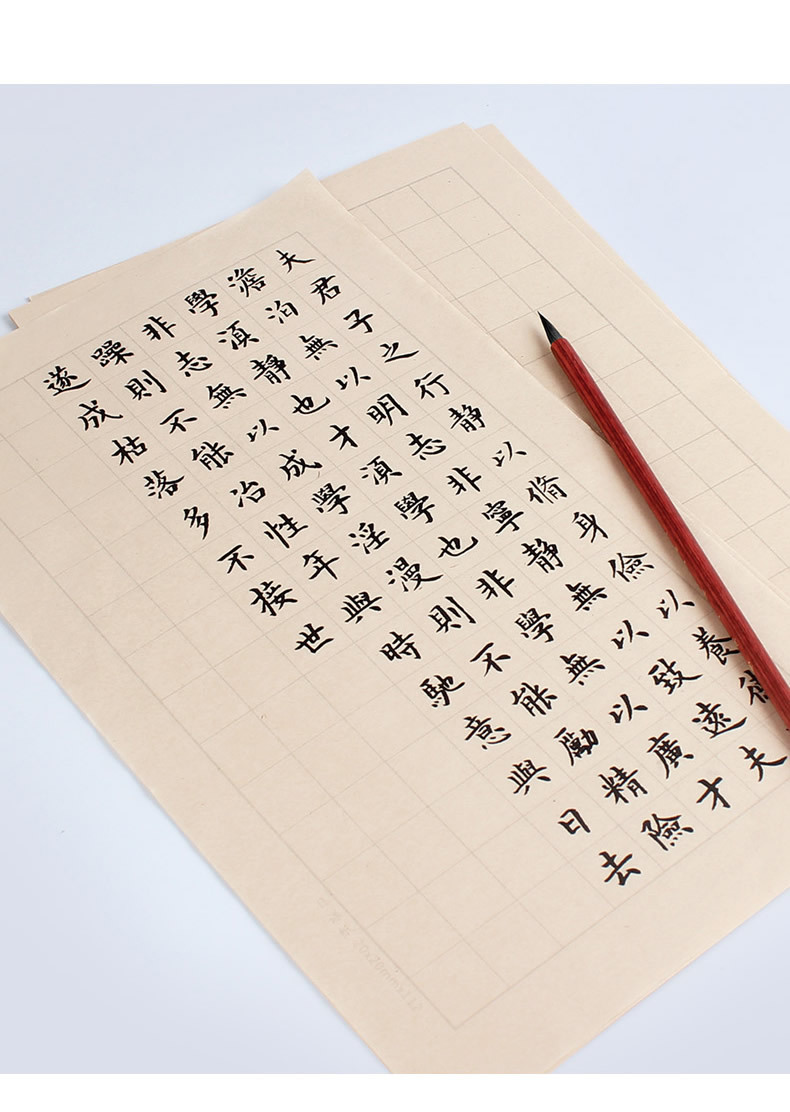 夫君子之行靜以脩身儉以養
澹泊無以明志非寧靜無以致遠夫
學湏靜也才湏學也非學無以廣才
非志無以成學淫漫則不能勵精險
躁則不能冶性年與時馳意與日去
遂成枯落多不接世